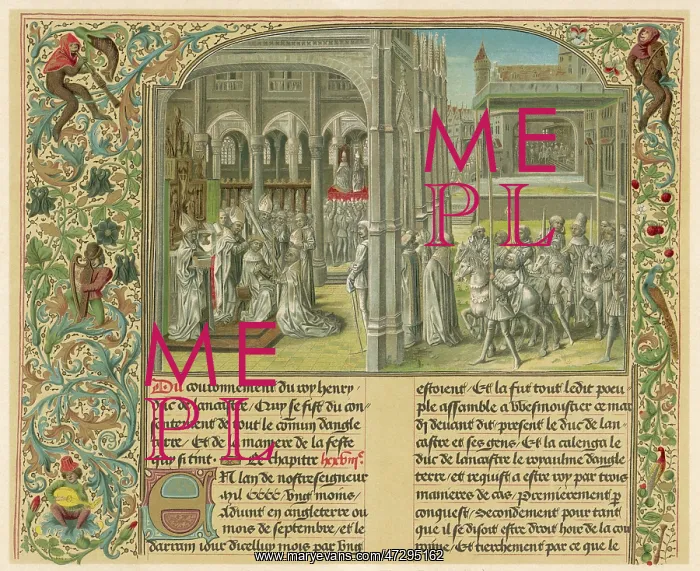 ME
PL
ME
PL
Du couronnement du roy henry /
duc de lancastre / Quy se fist du con
sentement de tout le commun dangle
terre / Et de la maniere de la feste
quy si tint. chapitre
En lan de nostre seigneur
mil cccc vngt moins /
Aduint en angleterre ou
mois de septembre, et le
darrain iour dicelluy mois par vng
estoient / Et la fut tout ledit poeu
ple assamble a wesmoustier ce mar
dj deuant dit present le duc de lan
castre et ses gens / Et la calenga le
duc de lancastre le royaulme dangle
terre / et requist a estre roy par trois
manieres de cas / Premierement p
conqueste / Secondement pour tant
que il se disoit estre droit hoir de la cou
ronne / Et tierchement par ce que le
www.maryevans.com/47295162